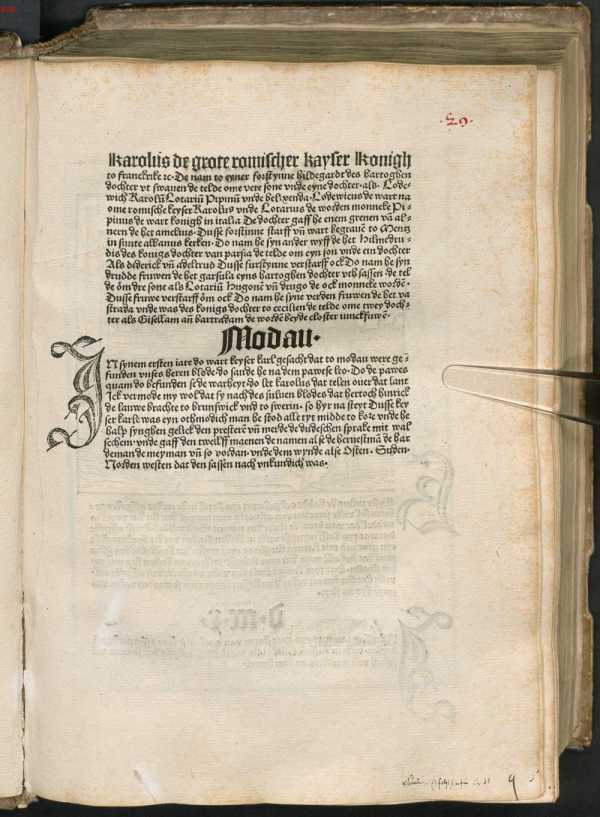 ·29·
Karolus de grote romischer kayser Konigh
to franckrike ⁊c· De nam to eyner forstynne hildegardt des hartoghen
dochter vt swauen de telde ome vere sone vnde eyne dochter· als· Lode-
wich Karolū Lotariū Pipinū vnde Lodewicus de wart na
ome romische keyser Karolus vnde Lotarius de worden monneke Pi
pinus de wart konigh in italia De dochter gaff he enem greuen vā al-
nern de het amelius· Dusse forstinne starff vn̄ wart begrauē to Mentz
in sunte albanus kerken· Do nam he syn ander wyff de het
dis des konigs dochter van parsia de telde om eyn son vnde ein dochter
Als diderick vn̄ adeltrud Dusse furstynne verstarff ock Do nam he syn
drudde fruwen de het garsula eyns hartoghen dochter vth sassen· de tel
de om dre sone als Lotariū hugonē vn̄ drugo de ock monneke wordē·
Dusse fruwe verstarff ōm ock Do nam he syne verden fruwen de het va
strada vnde was des konigs dochter to cecilien de telde ome twey doch-
ter als Gisellam an̄ bartradam de wordē beyde closter iunckfuwē·
Modau·
IN synem ersten iare do wart keyser karl gesacht dat to modau were ge-
funden vnses heren blode· do sande he na dem pawese leo· Do de pawes
quam do befunden se de warheyt· do let karolus dat telen ouer dat lant
Ick vermode my wol dat sy nach des suluen blodes dat hertoch hinrick
de lauwe brachte to brunswick vnd to swerin· so hyr na steyt Dusse key
ser karle was eyn othmodich man he stod alle tyt midde to kor vnde he
halp synghen gelick den presterē vn̄ merde de dudeschen sprake mit wal
schem· vnde gaff den twelff maenen de namen alse de heruestmā· de har
deman de meyman vn̄ so vordan· vnde dem wynde alse Osten· Suden·
Norden westen dat den sassen nach vnkundich was·